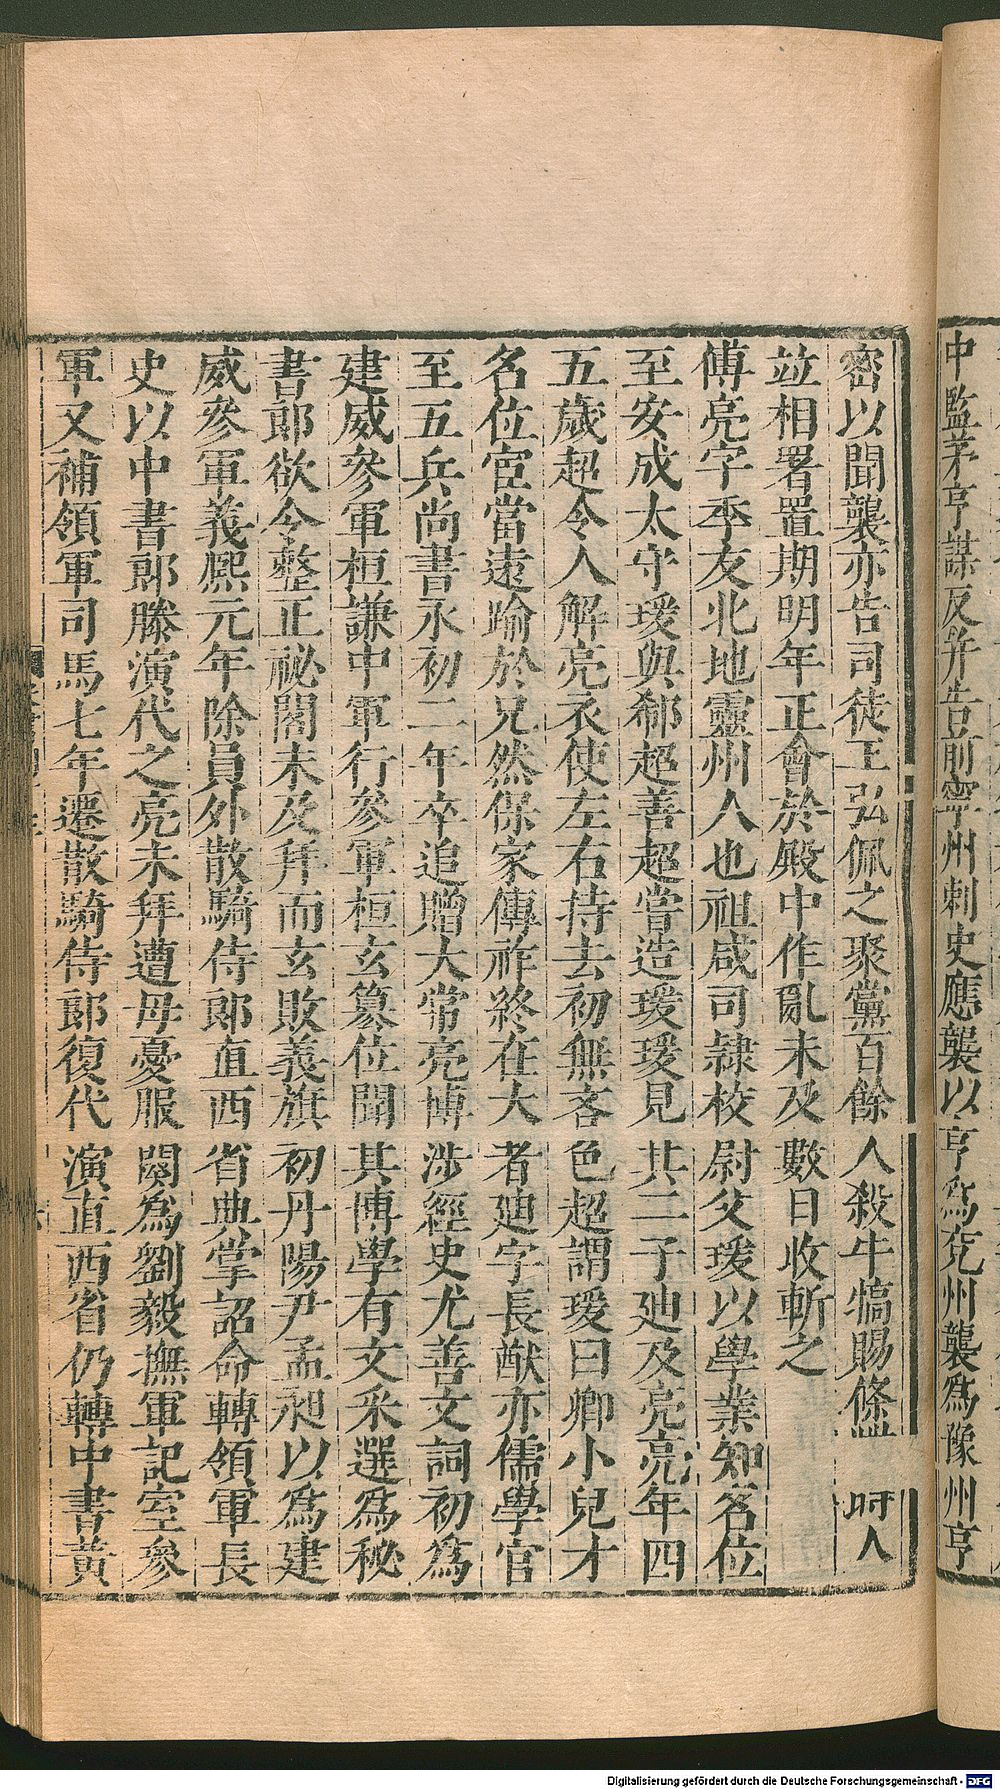 中監茅亨謀反并告前寧州刺史應襲以亨為兗州襲為豫州亨
密以聞襲亦告司徒王弘佩之聚黨百餘人殺牛犒賜條 人
竝相署置期明年正會於殿中作亂未及數日收斬之
傅亮字季友北地靈州人也祖咸司隷校尉父瑗以學業知名位
至安成太守瑗與郗超善超嘗造瑗瑗見其二子廸及亮亮年四
五歲超令人解亮衣使左右持去初無吝色超謂瑗曰卿小兒才
名位宦當遠踰於兄然保家傳祚終在大者廸字長猷亦儒學官
至五兵尚書永初二年卒追贈大常亮博涉經史尤善文詞初為
建威參軍桓謙中軍行參軍桓玄簒位聞其博學有文采選為秘
書郎欲令整正祕閣未及拜而玄敗義旗初丹陽尹孟昶以為建
威參軍義熈元年除員外散騎侍郎直西省典掌詔命轉領軍長
史以中書郎滕演代之亮未拜遭母憂服闋為劉毅撫軍記室參
軍又補領軍司馬七年遷散騎侍郎復代演直西省仍轉中書黃
Digitalisierung gefördert durch die Deutsche Forschungsgemeinschaft - DFG